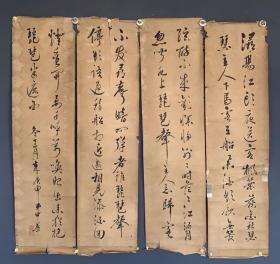 潯陽江頭夜送客楓葉荻花秋瑟
瑟主人下馬客在船舉酒欲飲無管
弦醉不成歡慘將別別時茫茫江浸月
忽聞水上琵琶聲主人忘歸客
不發尋聲暗問彈者誰琵琶聲
停欲語遲移船相近邀相見添酒回
燈重開宴千呼萬喚始出來猶抱
琵琶半遮面